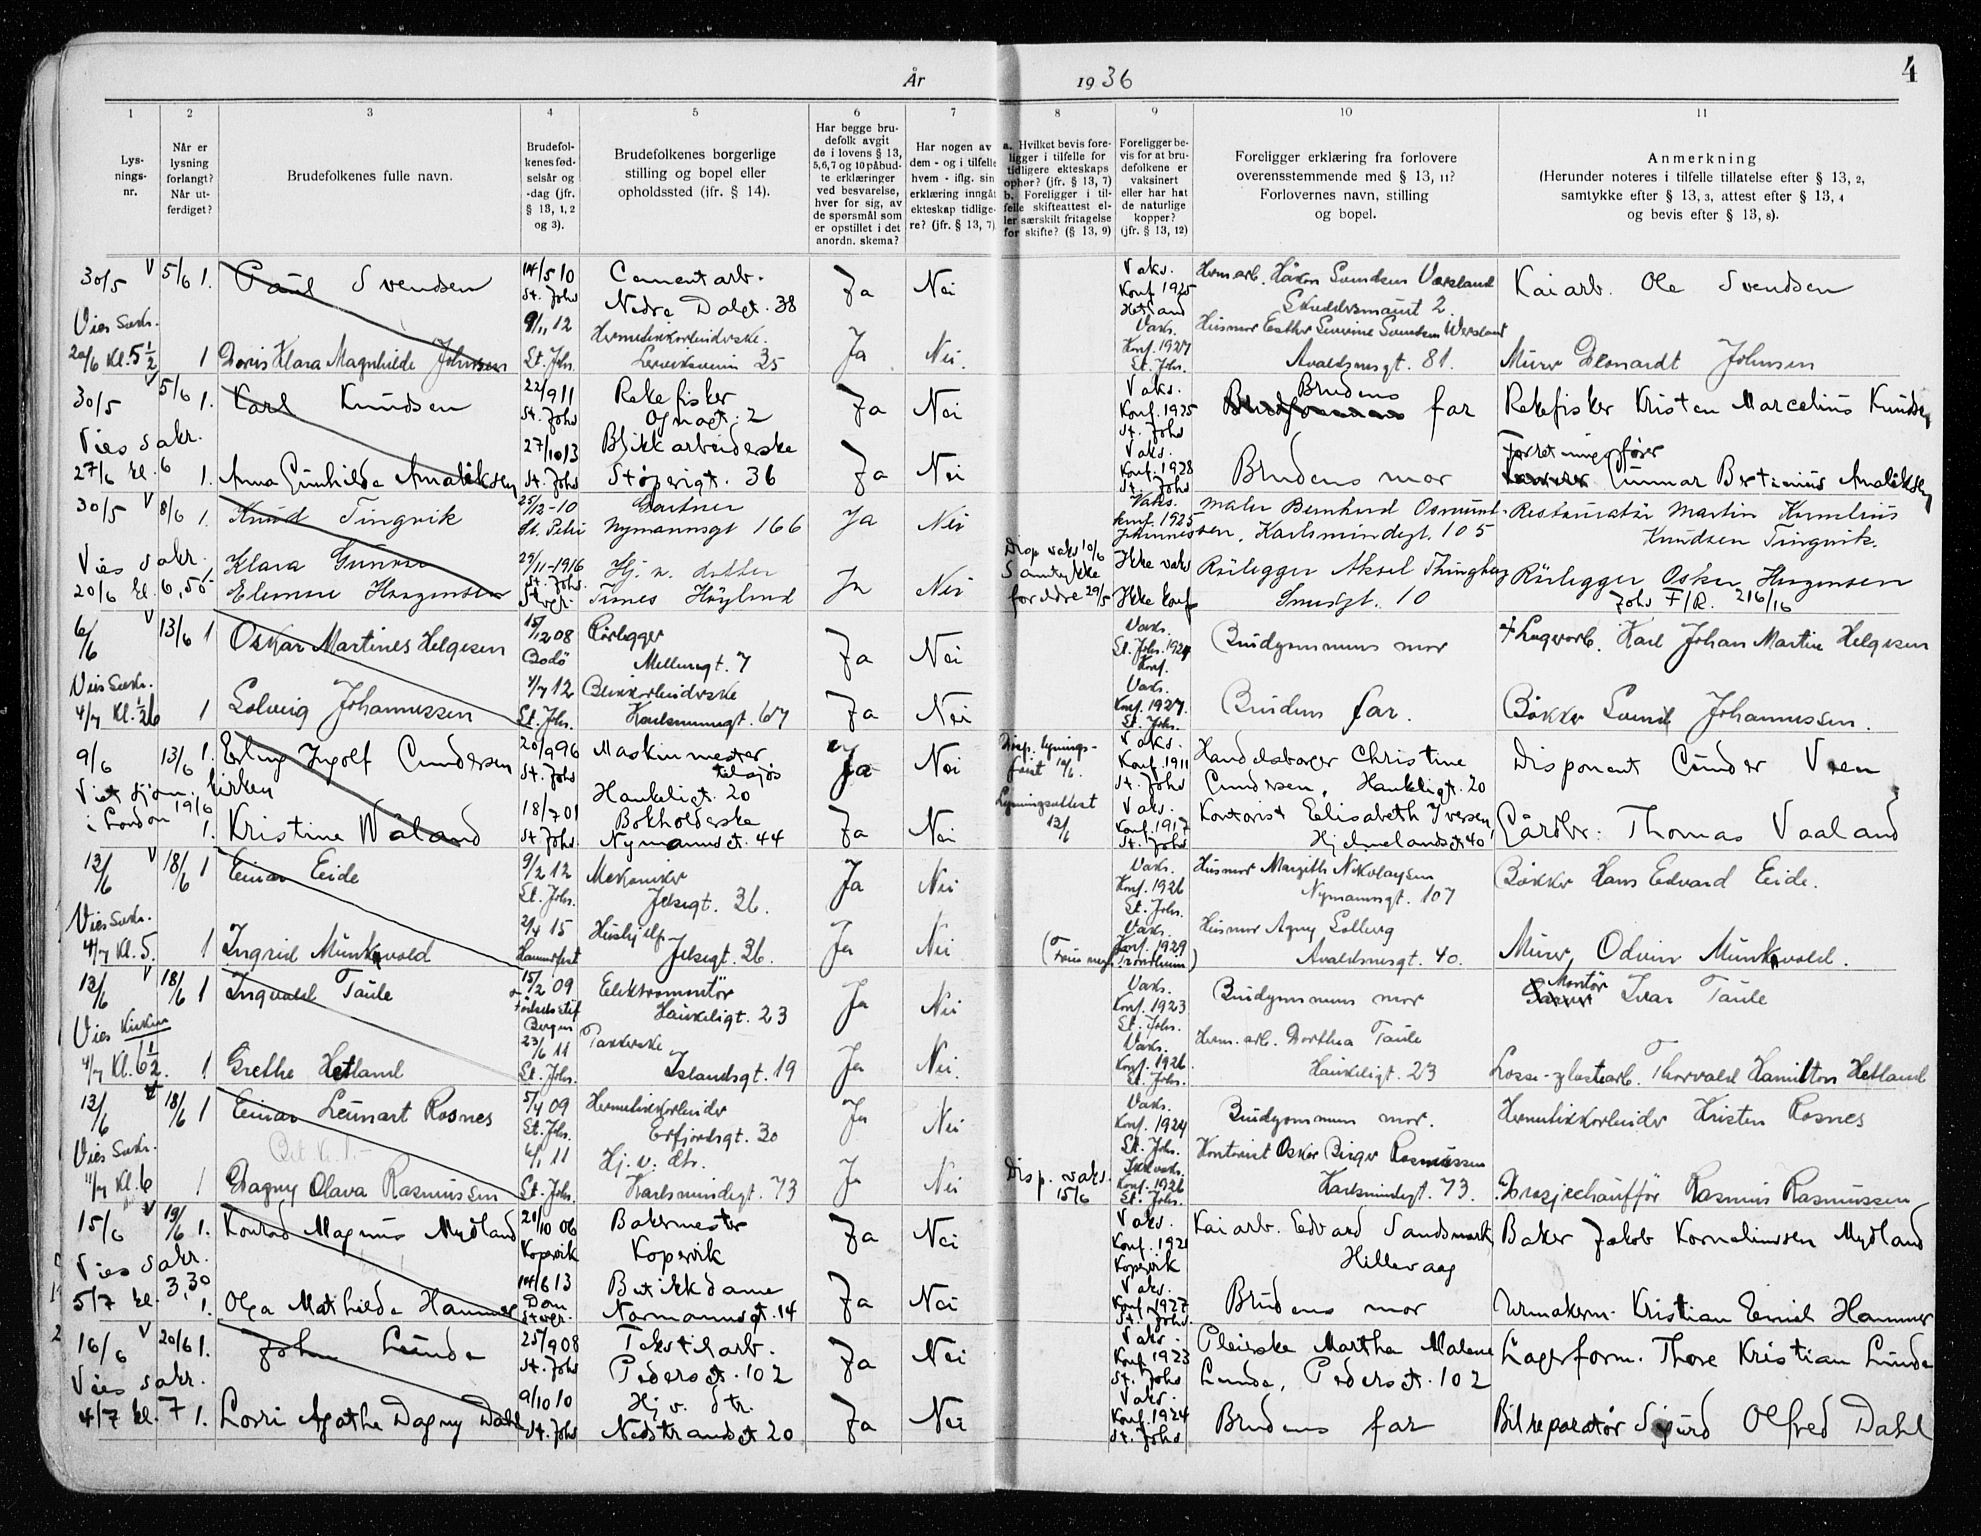 4
År 1936
1 2 3 4 5 6 7 8 9 10 11
Lys-
nings-
nr.
Når er
lysning
forlangt?
Når ut-
ferdiget?
Brudefolkenes fulle navn.
Brudefol-
kenes fød-
selsår og
-dag (jfr.
§ 13, 1, 2
og 3).
Brudefolkenes borgerlige
stilling og bopel eller
opholdssted (jfr. § 14).
Har begge bru-
defolk avgit
de i lovens § 13,
5,6,7 og 10 påbud-
te erklæringer
ved besvarelse,
hver for sig, av
de spørsmål som
er opstillet i det
anordn. skema?
Har nogen av
dem - og i tilfelle
hvem - iflg. sin
erklæring inngåt
ekteskap tidlige-
re? (jfr. § 13, 7)
a. Hvilket bevis fore-
ligger i tilfelle for
tidligere ekteskaps
ophør? (jfr. § 13, 7)
b. Foreligger i til-
felle skifteattest el-
ler særskilt fritagelse
for skifte? (§ 13, 9)
Foreligger be-
vis for at bru-
defolkene er
vaksinert
eller har hat
de naturlige
kopper?
(jfr. § 13, 12)
Foreligger erklæring fra forlovere
overensstemmende med § 13, 11?
Forlovernes navn, stilling
og bopel.
Anmerkning
(Herunder noteres i tilfelle tillatelse efter § 13, 2,
samtykke efter § 13, 3, attest efter § 13, 4
og bevis efter § 13, 8).
30/5 V 5/6 1. Paul Svendsen 14/5 10 St. Johs Cementarb. Nedre Dalgt. 38 Ja Nei Vaks. Konf. 1925 Hetland Herm arb. Håkon Svendsen Værsland 2. Kaiarb. Ole Svendsen
Vies Sakr.
20/6 Kl. 5 1/2 1 Doris Klara Magnhilde Johnsen 9/11 12 St. Joh. 35 Ja Nei. Vaks. Konf. 1927 St. Joh. Husmor Esther Severine Svendsen Avaldsnesgt. 81. Murer Johnsen
30/5 V 5/6 1. Karl Knudsen 22/9 11 St. Johs Rekefisker Ognagt. 2 Ja Nei Vaks. Konf. 1925 St. Johs Brudens far Rekefisker Kristen Marcelius Knudsen
Vies sakr.
27/6 kl. 6 1. Anna Gunhilde Amaliksen 27/10 13 St. Johs Blikkarbeiderske Støperigt. 36 Ja Nei Vaks. Konf. 1928 St. Johs Brudens mor Forretningsfører Gunnar Bertinius Amaliksen
30/5 V 8/6 1. Knud Tingvik 25/12-10 St. Petri Gartner Nymannsgt 166 Ja Nei Vaks. Konf. 1925 Johannes Maler Bernhard Osmund-
sen, Karlsmindegt. 105 Restauratør Martin Kornelius
Knudsen Tingvik.
Vies sakr.
20/6 kl. 6,50 1 Klara
29/11-1916 St. Johs. Stvgr. Hj. v. datter
Tines Høylund Ja Nei Disp. vaks 10/6
Samtykke
foreldre 29/5 Ikke vaks
Ikke konf Rørlegger Aksel
10 Rørlegger Oskar
Johs F/R. 216/16
6/6 V 13/6 1 Oskar Martines Helgesen 15/12 08 Bodø Rørlegger Møllergt. 7 Ja Nei Vaks. St. Joh. 1924 Konf. Brudgommens mor + Lagerarb. Karl Johan Martin Helgesen
Vies Sakr.
4/7 Kl. 1/2 6 1 Solveig Johannessen 4/7 12 St. Joh. Karlsmindegt. 67 Ja Nei Vaks. Konf. 1927. St. Joh. Brudens far. Bøkker Johannessen.
9/6 13/6 1. Erling Ingolf Gundersen 20/9 96 St. Johs Maskinmester
tilsjøs
Haukeligt. 20 Ja Nei Disp. lysnings-
Vaks. Konf. 1911 St. Johs Handelsborger Christine
Gundersen, Haukeligt. 20 Disponent Gunder
Viet sjøm. kirken
i London 19/6 1. Kristine Wåland 18/7 01 St. Johs Bokholderske
Nymannsgt. 44 Ja Nei Lysningsattest
12/6 Vaks. Konf. 1917 St. Johs Kontorist Elisabeth Iversen,
Hjelmelandsgt 40 Gårdbr. Thomas Vaaland
12/6 V 18/6 1 Einar Eide 9/2 12 St. Joh. Mekaniker
Jelsegt. 36. Ja Nei Vaks. Konf. 1926 St. Joh. Husmor Margith Nikolaysen
Nymannsgt. 107 Bøkker Hans Edvard Eide.
Vies Sakr.
4/7 Kl. 5. 1 Ingrid Munkvold 2/4 15 Hammerfest Hushj elp
Jelsegt. 36. Ja Nei Vaks. Konf. 1929
Husmor Agny Solberg
Avaldsnesgt. 40. Murer Odin Munkvold.
12/6 V 18/6 1 Ingvald Taule 15/2 09 Bergen Elektromontør
Haukeligt. 23 Ja Nei Vaks. Konf. 1923 St. Joh. Brudgommens mor Montør
Ivar Taule
Vies Kirken
4/7 Kl. 6 1/2. 1 Grethe Hetland 23/6 11 St. Joh. Pakkerske
Islandsgt. 19 Ja Nei. Vaks. Konf. 1926 St. Joh. Herm. arb. Dorthea Taule
Haukeligt. 23 Losse- og lastearb. Thorvald Hamilton Hetland
12/6 18/6 1 Einar Lennart Rosnes 5/4 09 St. Joh. Hermetikkarbeider
Erfjordsgt. 30 Ja Nei Vaks. Konf. 1924 St. Joh. Brudgommens mor. Hermetikkarbeider Kristen Rosnes
Vies Sakr.
11/7 Kl. 6 1 Dagny Olava Rasmussen 6/1 11 St. Joh. Hj. v. dtr.
Karlsmindegt. 73 Ja Nei Disp. vaks.
15/6 Ikke vaks. Konf. 1926 St. Joh. Kontorist Oskar Birger Rasmussen
Karlsmindegt. 73. Drosjechauffør Rasmus Rasmussen
15/6 V 19/6 1. Konrad Magnus Mydland 21/10 06 Kopervik Bakermester
Kopervik Ja Nei Vaks. Konf. 1921 Kopervik Kaiarb. Edvard Sandsmark,
Hillevaag Baker Jakob Korneliussen Mydland
Vies sakr.
5/7 kl. 3,30 1. Olga Mathilde Hammer 14/6 13 Dom Stvgr. Butikkdame
Normannsgt. 14 Ja Nei Vaks. Konf. 1927 St. Johs. Brudens mor Urmakerm. Kristian Emil Hammer
16/6 V 20/6 1. John Lunde 25/9 08 St. Johs Tekstilarb.
Pedersgt. 102 Ja Nei Vaks. Konf. 1923 St. Johs Pleierske Martha Malene
Lunde, Pedersgt. 102 Lagerform. Thore Kristian Lunde
Vies sakr.
4/7 kl. 7 1. Lorri Agathe Dagny Dahl 9/10 10 St. Johs Hj v. dtr.
Nedstrandsgt 20 Ja Nei Vaks. Konf. 1924 St. Johs Brudens far Bilreparatør Sigurd Olfred Dahl